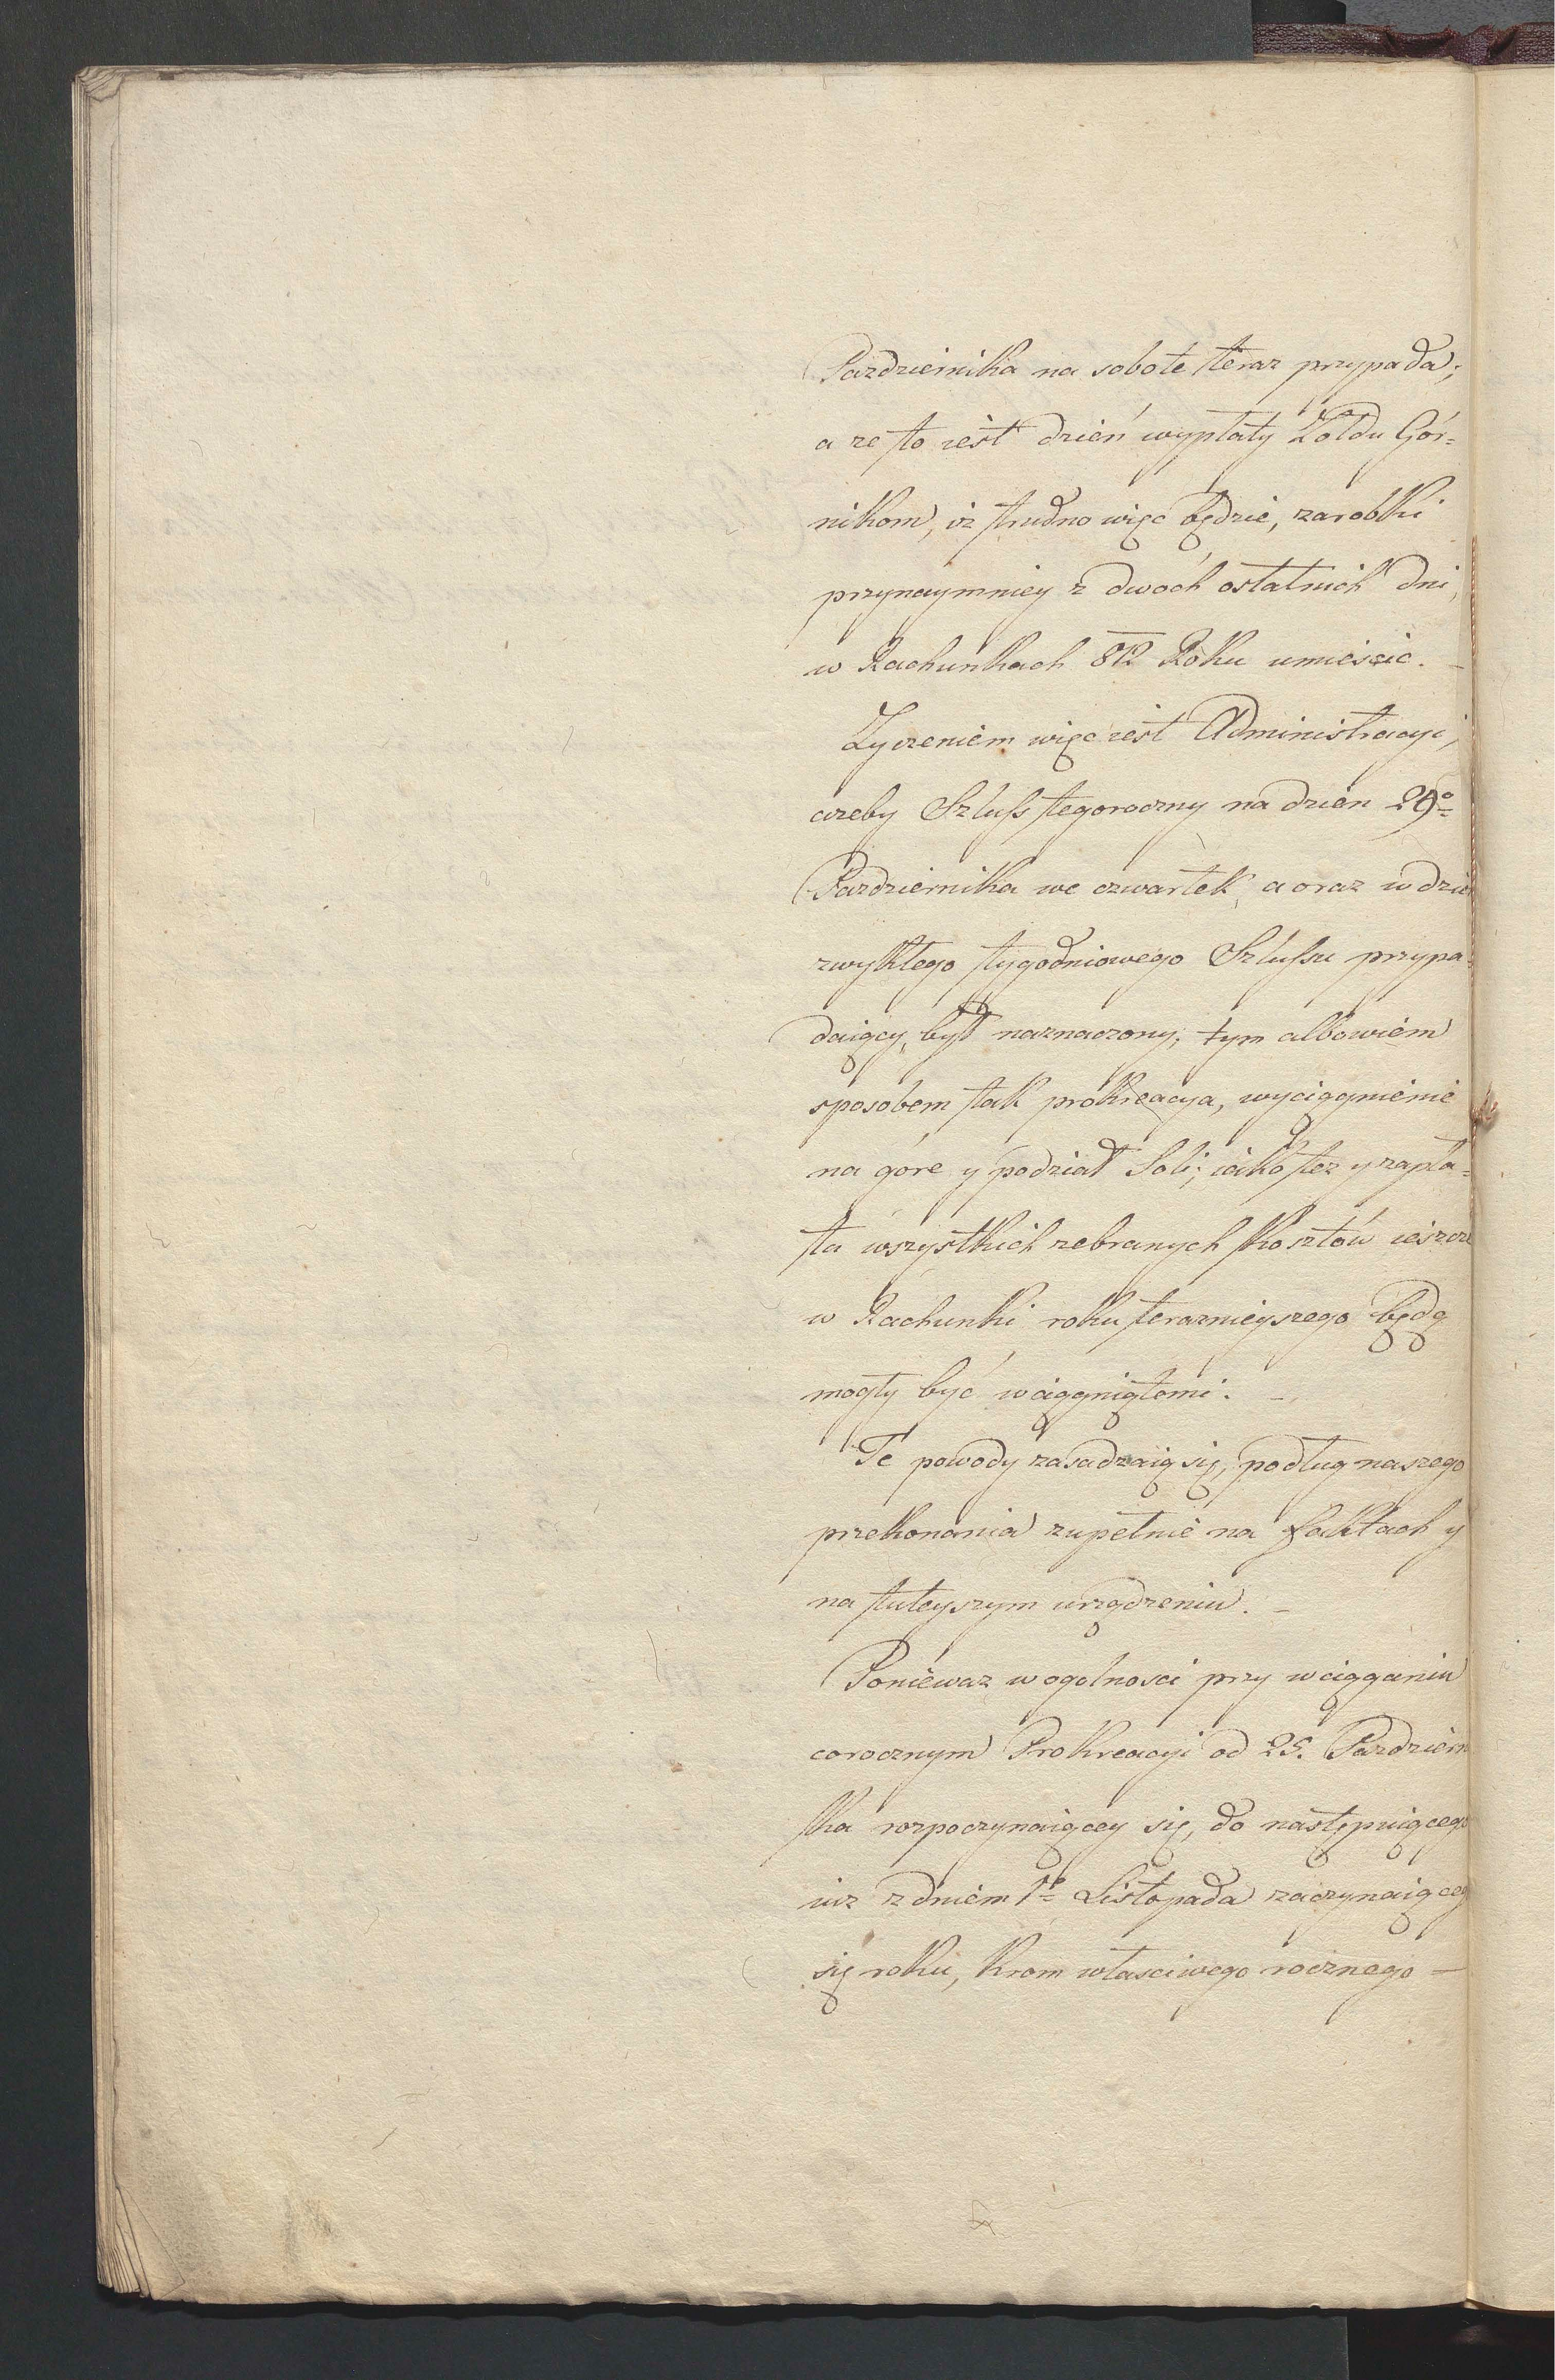 Pazdziernika na sobote teraz przypada;
a ze to iest dzień wypłaty Żołdu Gór=
nikom, iż trudno więc będzie, zarobki
przynaymniey z dwóch ostatnich dni,
w Rachunkach 812 Roku umieścic. –
Zyczeniem więc iest Administracyi,
azeby Szluss tegoroczny na dzien 29º
Pazdziernika we czwartek, a oraz w dzie
zwykłego tygodniowego Szlussu przypa=
daiący, był naznaczony; tym albowiem
sposobem tak prokreacya, wyciągnienie
na góre y podział Soli; iako tez y zapła=
ta wszystkich zebranych Kosztów ieszcze
w Rachunki roku teraznieyszego będą
mogły być wciągniętemi. –
Te powody zasadzaią się, podług naszego
przekonania zupełnie na faktach y
na tuteyszym urządzeniu. –
Poniewaz w ogolnosci przy wciąganiu
corocznym Prokreacyi od 25. Pazdzierni
ka rozpoczynaiącey się, do następuiącego
iuz z dniem 1º Listopada zaczynaiącego
się roku, krom własciwego rocznego –